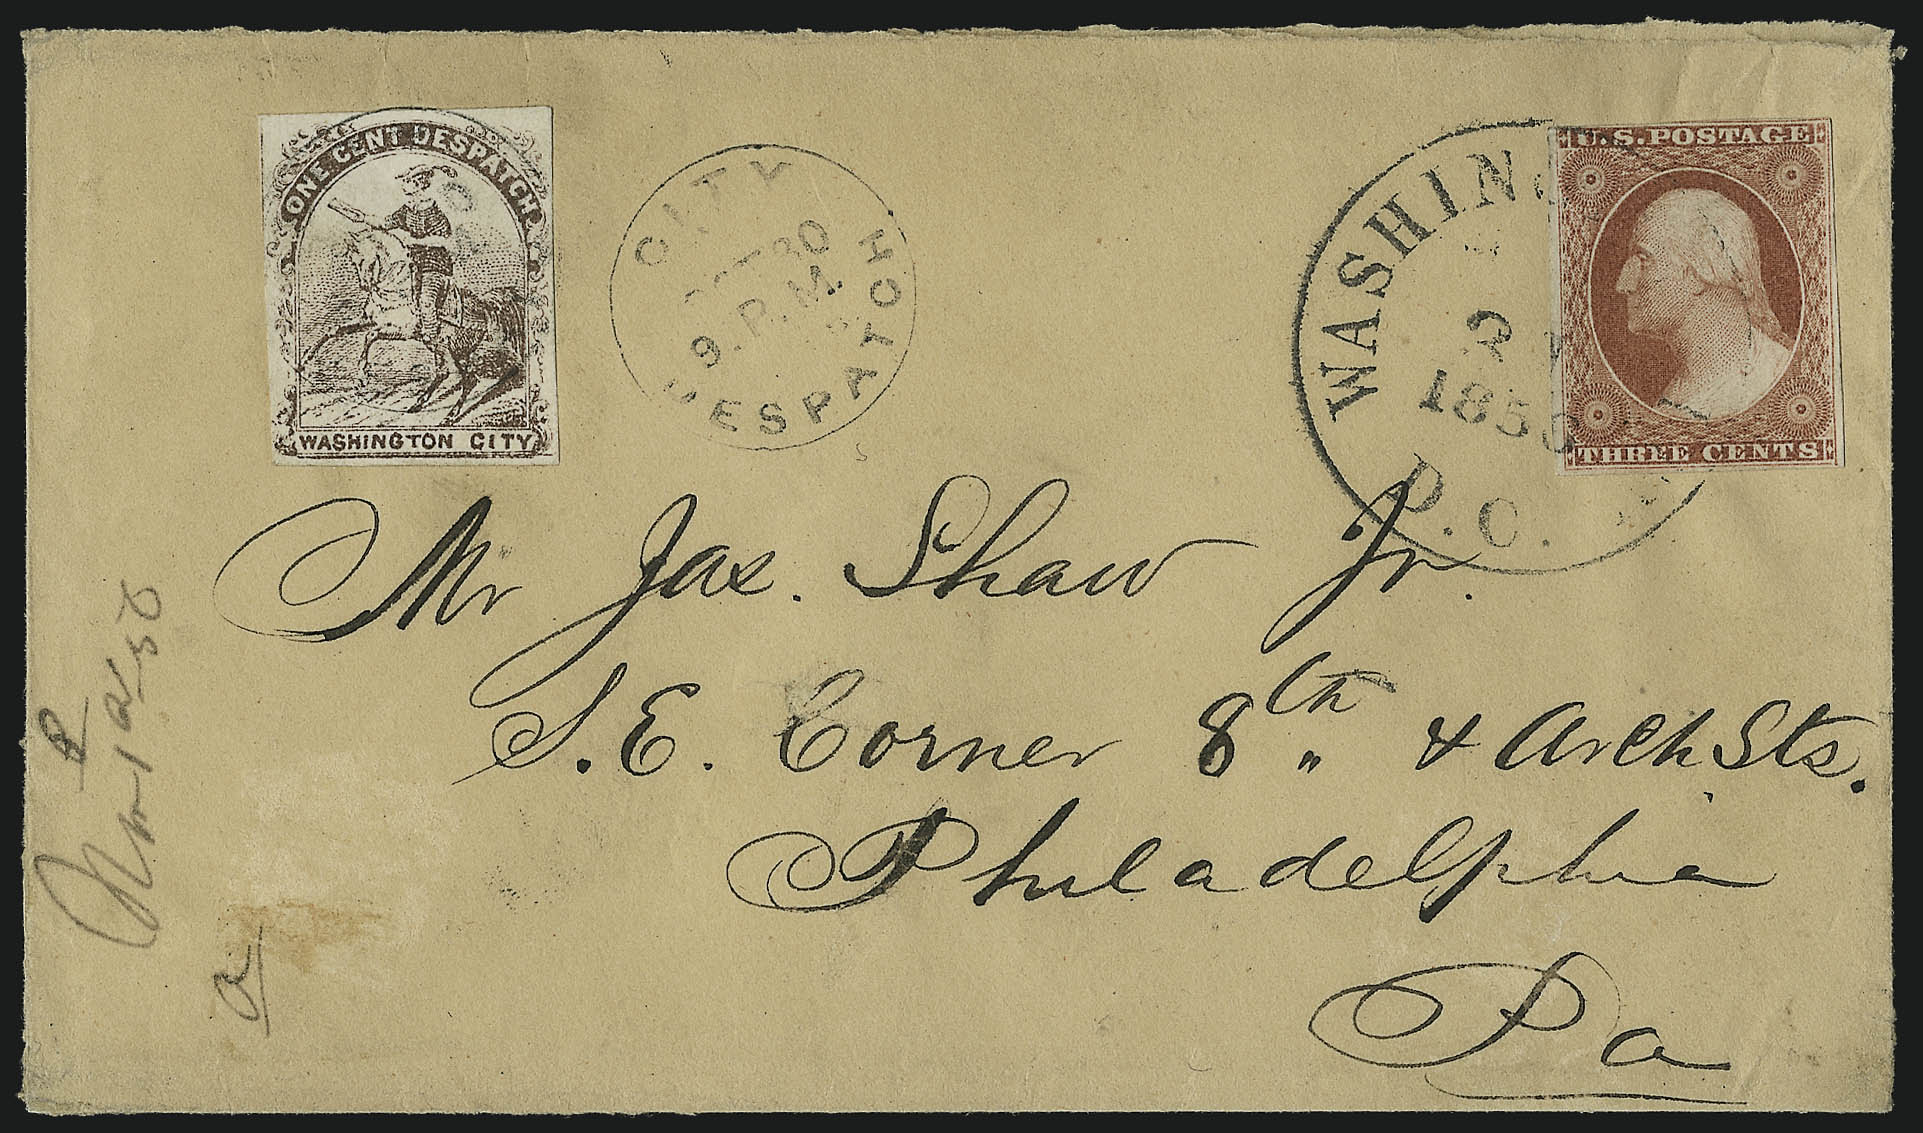 ONE CENT DESPATCH
WASHINGTON CITY
CITY
OCT 30
9. P.M.
DESPATCH
WASHING
1856
D.C.
U.S. POSTAGE
THREE CENTS
Mr Jas. Shaw Jr.
S.E. Corner 8th & Arch Sts.
Philadelphia
Pa